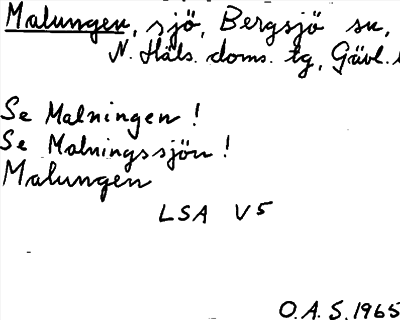 Malungen, sjö, Bergsjö sn,
N. Häls. doms. tg, Gävl.
Se Malningen!
Se Malningssjön!
Malungen
LSA V5
O.A.S. 1965